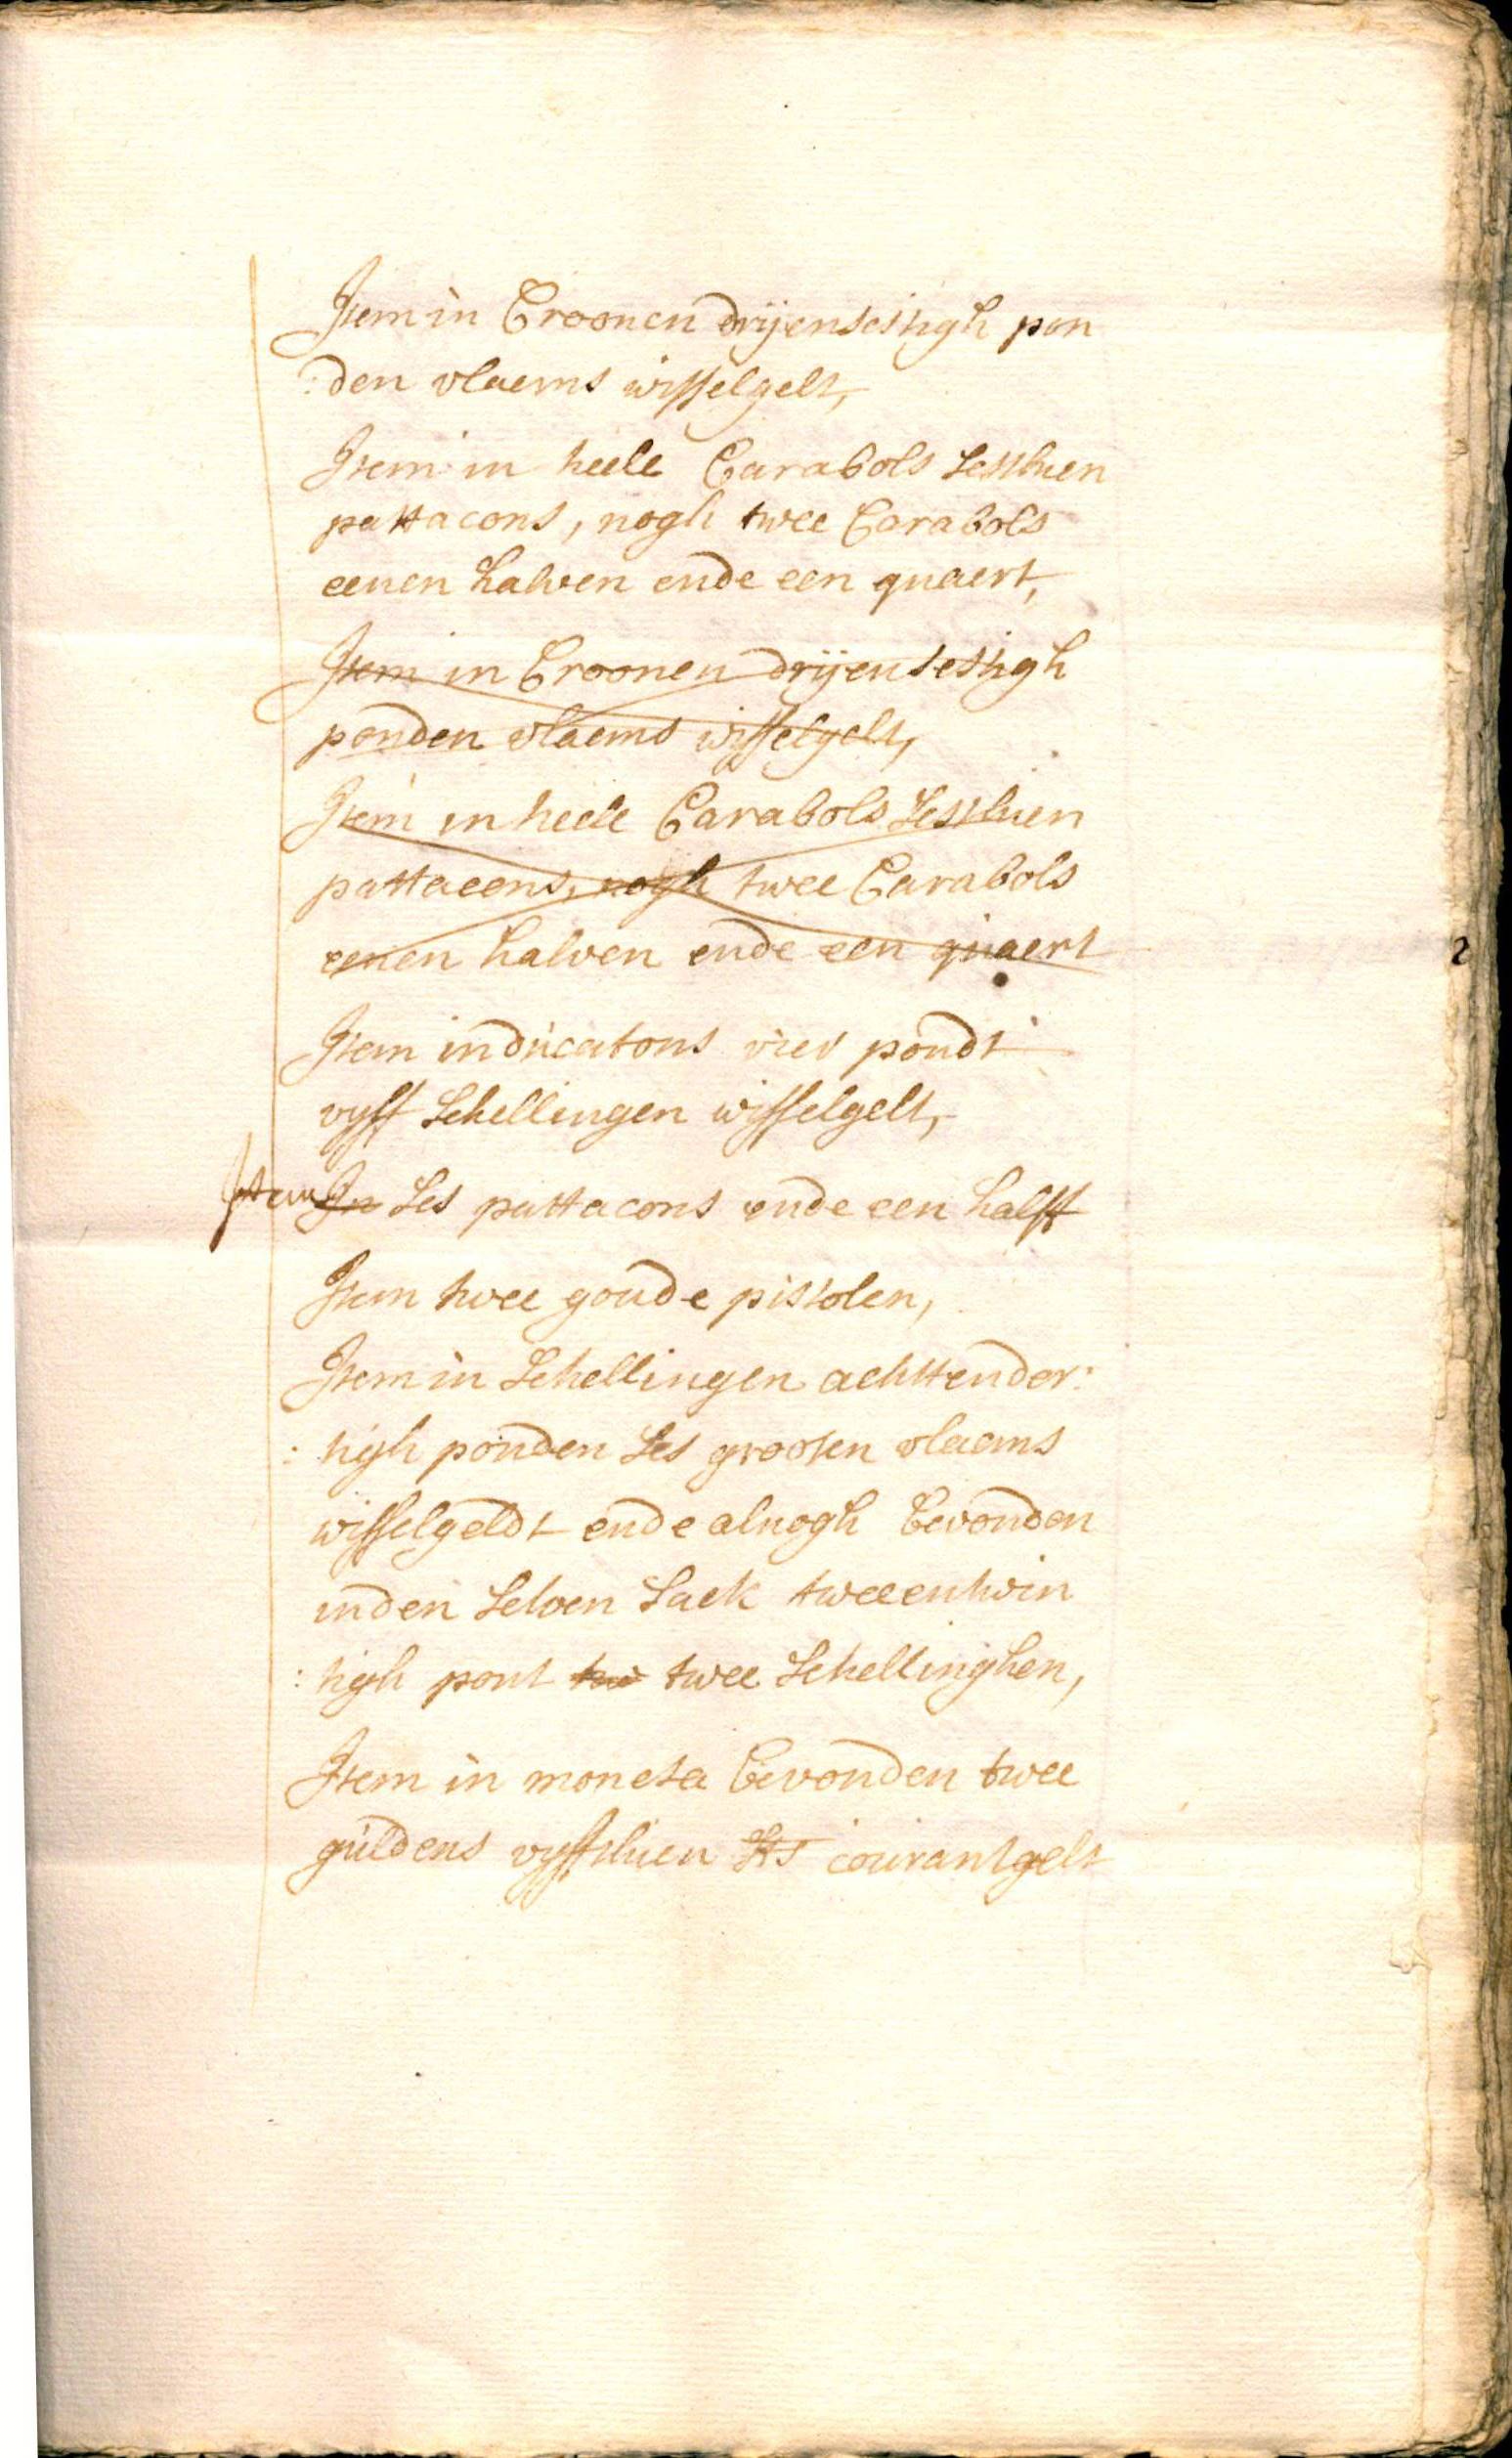 Item in Croonen drijensestigh pon
:den vlaems wisselgelt,
Item in heele Carabols sesthien
pattacons, nogh twee Carabols
eenen halven ende een quaert,
Item in Croonen drijensestigh
ponden vlaems wisselgelt,
Item in heele Carabols sesthien
pattacons, nogh twee Carabols
eenen halven ende een quaert
Item in ducatons vier pondt
vyff schellingen wisselgelt,
Item In ses pattacons ende een halff
Item twee goude pistolen,
Item in schellingen achttender:
:tigh ponden ses grooten vlaems
wisselgeldt ende alnogh bevonden
inden selven sack tweeentwin
:tigh pont tw twee schellinghen,
Item in moneta bevonden twee
guldens vyffthien sts courantgelt